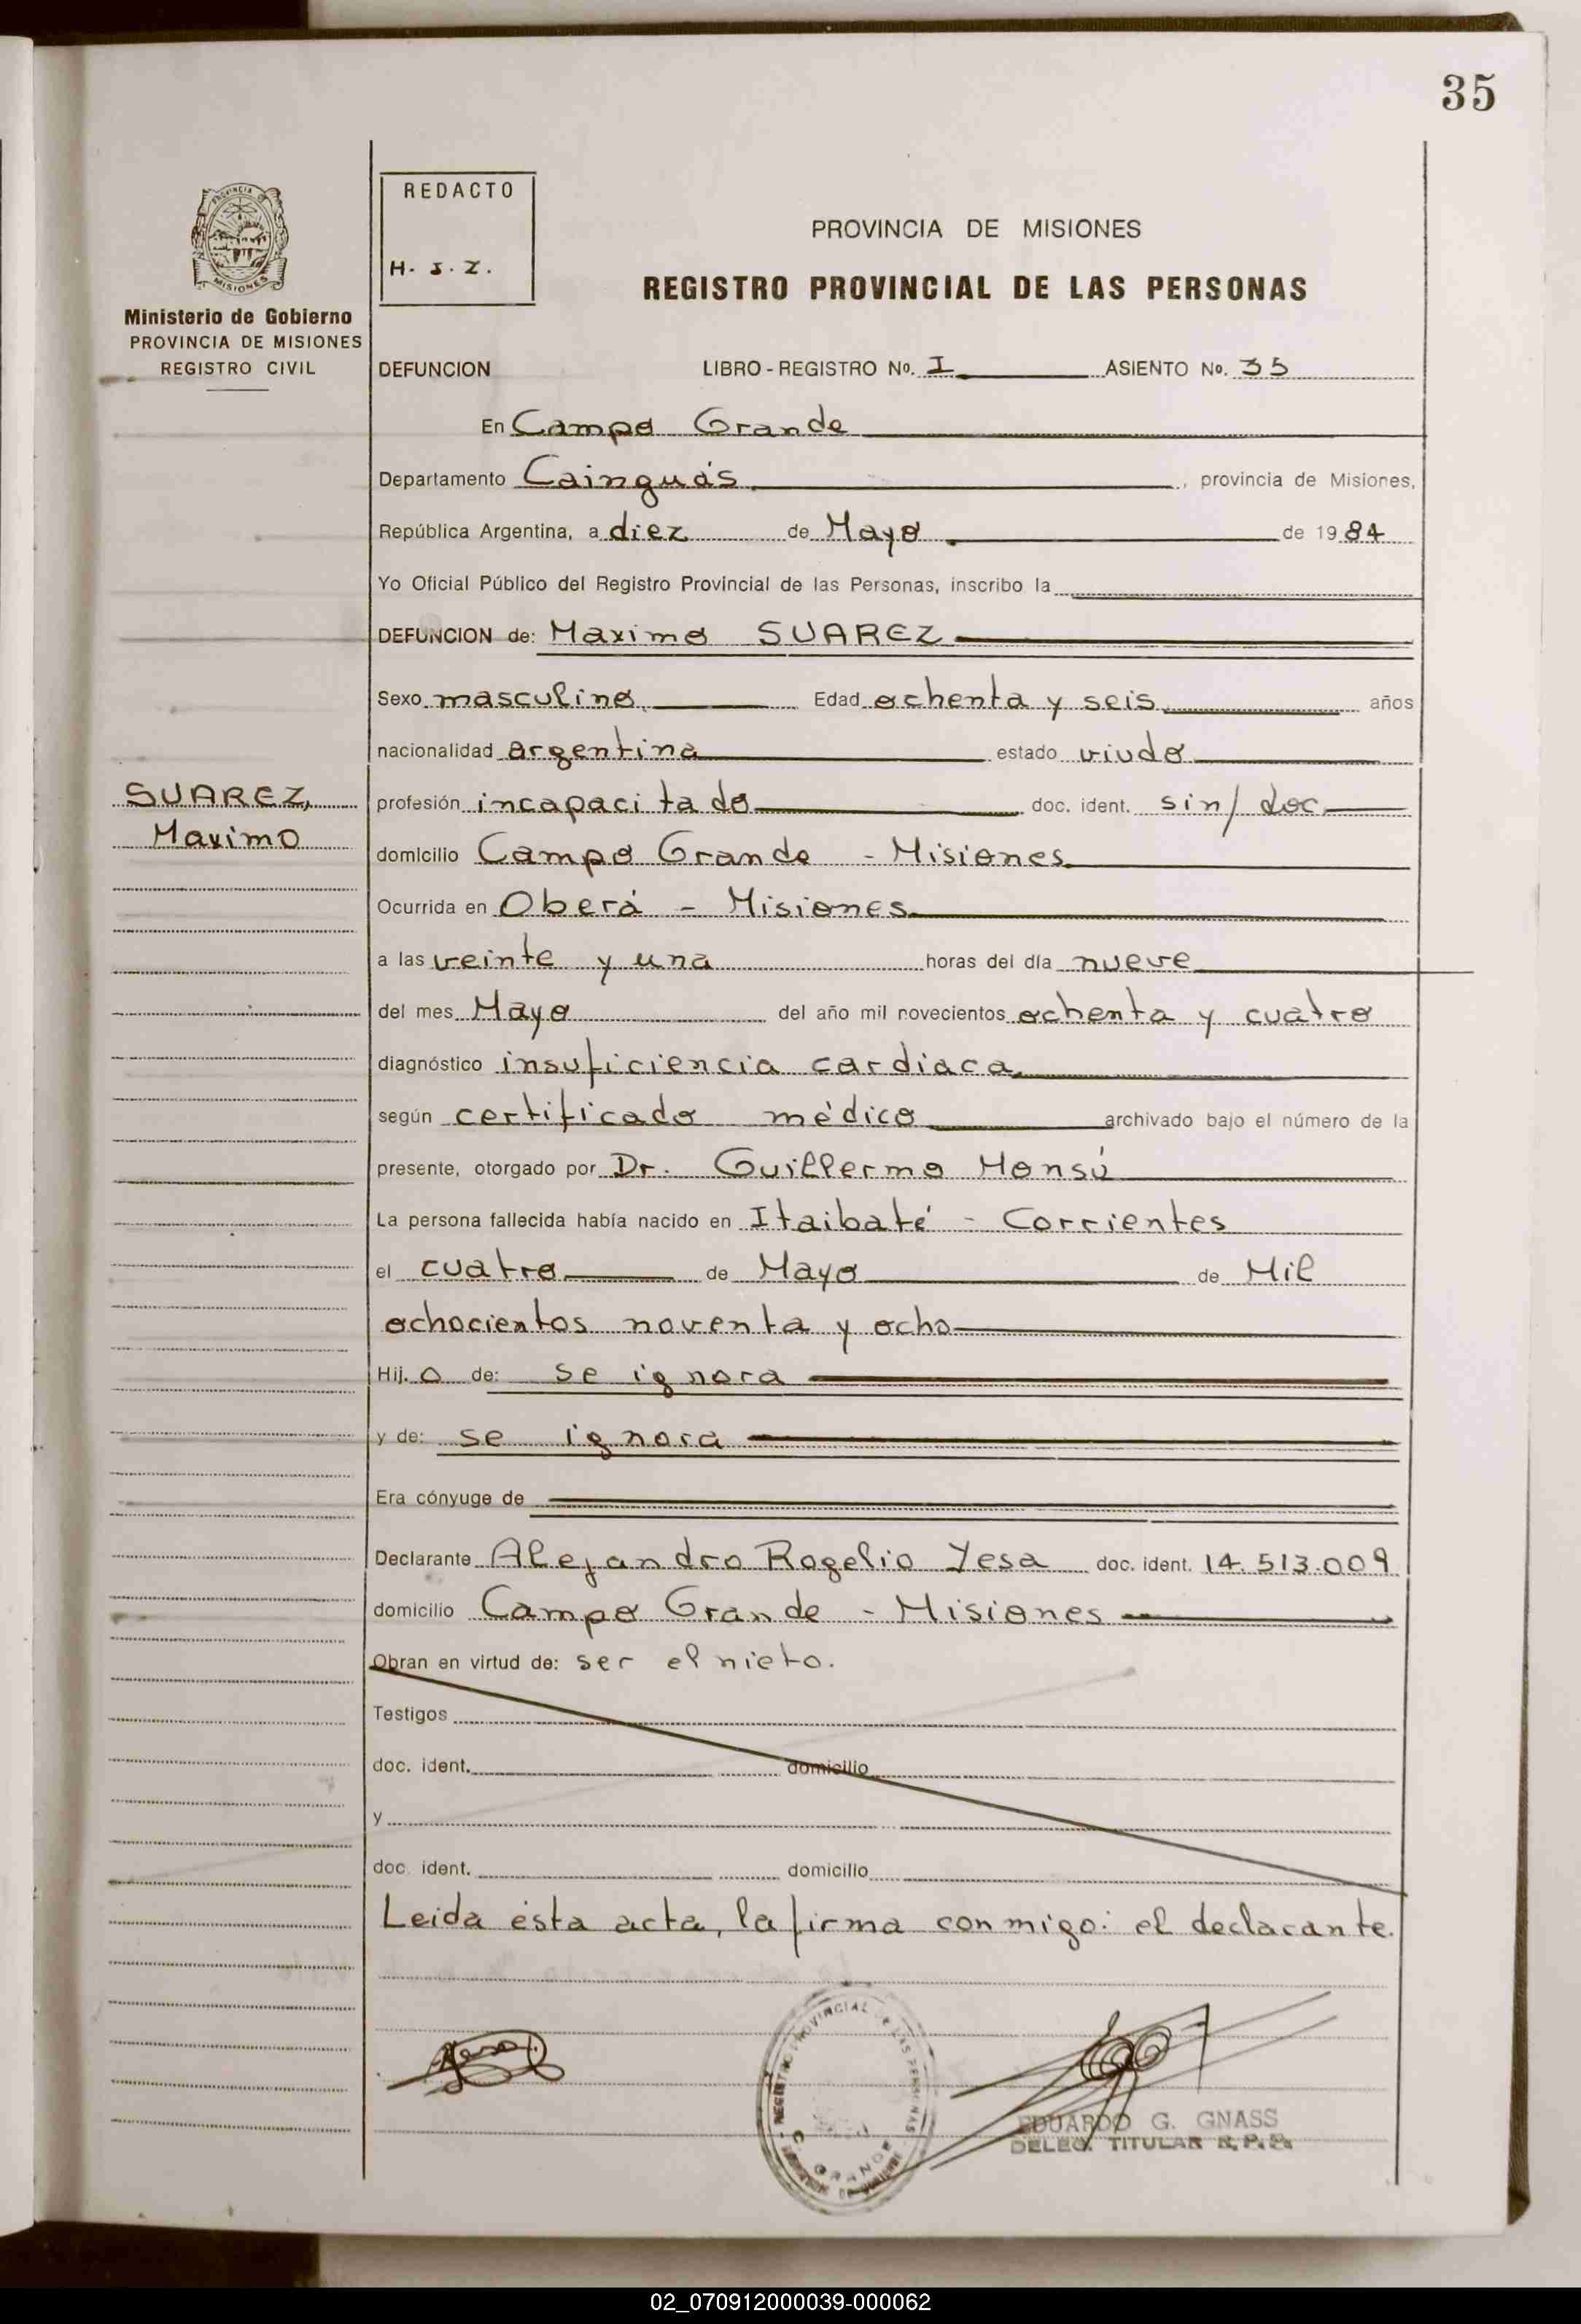 35
PROVINCIA
MISIONES
Ministerio de Gobierno
PROVINCIA DE MISIONES
REGISTRO CIVIL
REDACTO
H. J. Z.
PROVINCIA DE MISIONES
REGISTRO PROVINCIAL DE LAS PERSONAS
DEFUNCION LIBRO - REGISTRO No. I ASIENTO No. 35
En Campo Grande
Departamento Cainguás, provincia de Misiones,
República Argentina, a diez de Mayo de 1984
Yo Oficial Público del Registro Provincial de las Personas, inscribo la
DEFUNCION de: Maximo SUAREZ
Sexo masculino Edad ochenta y seis años
nacionalidad argentina estado viudo
SUAREZ,
Maximo
profesión incapacitado doc. ident. sin/doc
domicilio Campo Grande - Misiones
Ocurrida en Oberá - Misiones
a las veinte y una horas del día nueve
del mes Mayo del año mil novecientos ochenta y cuatro
diagnóstico insuficiencia cardiaca
según certificado médico archivado bajo el número de la
presente, otorgado por Dr. Guillermo Monsú
La persona fallecida había nacido en Itaibaté - Corrientes
el cuatro de Mayo de Mil
ochocientos noventa y ocho
Hij.o de: se ignora
y de: se ignora
Era cónyuge de
Declarante Alejandro Rogelio Yesa doc. ident. 14.513.009
domicilio Campo Grande - Misiones
Obran en virtud de: ser el nieto.
Testigos
doc. ident. domicilio
y
doc. ident. domicilio
Leida ésta acta, la firma conmigo: el declarante.
REGISTRO PROVINCIAL DE LAS PERSONAS
GRANDE
EDUARDO G. GNASS
DELEG. TITULAR R.P.P.
02_070912000039-000062